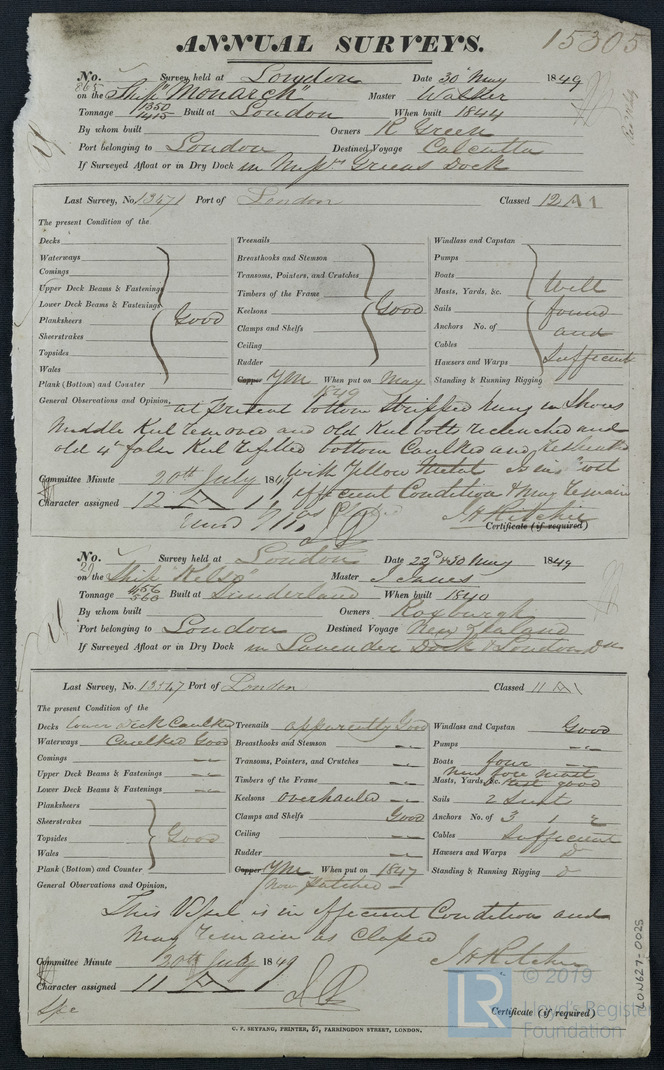 15305
ANNUAL SURVEYS.
No. 865 Survey held at London Date 30 May 1849
on the Ship "Monarch" Master Walker
Tonnage 1350 1415 Built at London When built 1844
By whom built Owners R Green
Port belonging to London Destined Voyage Calcutta
If Surveyed Afloat or in Dry Dock in Messrs Greens Dock
Last Survey, No. 13471 Port of London Classed 12 A1
The present Condition of the
Decks
Waterways
Comings
Upper Deck Beams & Fastenings
Lower Deck Beams & Fastenings
Planksheers
Sheerstrakes
Topsides
Wales
Plank (Bottom) and Counter
Good
Treenails
Breasthooks and Stemson
Transoms, Pointers, and Crutches
Timbers of the Frame
Keelsons
Clamps and Shelfs
Ceiling
Rudder
Good
Copper YM When put on May 1849
Windlass and Capstan
Pumps
Boats
Masts, Yards, &c.
Sails
Anchors No. of
Cables
Hawsers and Warps
Standing & Running Rigging
Well found and Sufficient
General Observations and Opinion, at present bottom Stripped hung in Shores
Middle Keel removed and old Keel bolts reclenched and
old 4 in false Keel refitted bottom Caulked and
with Yellow Metal is in
efficient Condition & may remain
as Classed
J H Ritchie
Committee Minute 20th July 1849
Character assigned 12 A 1
Certificate (if required)
No. 20 Survey held at London Date 22d & 30 May 1849
on the Ship "Kelso" Master J Innes
Tonnage 456 560 Built at Sunderland When built 1840
By whom built Owners Roxburgh
Port belonging to London Destined Voyage New Zealand
If Surveyed Afloat or in Dry Dock in Lavender Dock & London Do
Last Survey, No. 13547 Port of London Classed 11 A1
The present Condition of the
Decks lower deck Caulked
Waterways Caulked Good
Comings
Upper Deck Beams & Fastenings
Lower Deck Beams & Fastenings
Planksheers
Sheerstrakes
Topsides
Wales
Plank (Bottom) and Counter
Good
Treenails apparently Good
Breasthooks and Stemson
Transoms, Pointers, and Crutches
Timbers of the Frame
Keelsons overhauled
Clamps and Shelfs Good
Ceiling
Rudder
Copper YM When put on 1847
Now Patched
Windlass and Capstan Good
Pumps
Boats four
Masts, Yards, &c. New fore mast rest good
Sails 2 Suits
Anchors No. of 3 1 2
Cables Sufficient
Hawsers and Warps Do
Standing & Running Rigging Do
General Observations and Opinion,
This Vessel is in efficient Condition and
may remain as classed
J H Ritchie
Committee Minute 20th July 1849
Character assigned 11 A 1
Certificate (if required)
C. F. SEYFANG, PRINTER, 57, FARRINGDON STREET, LONDON.
LON627-0025
LR © 2019
Lloyd's Register
Foundation